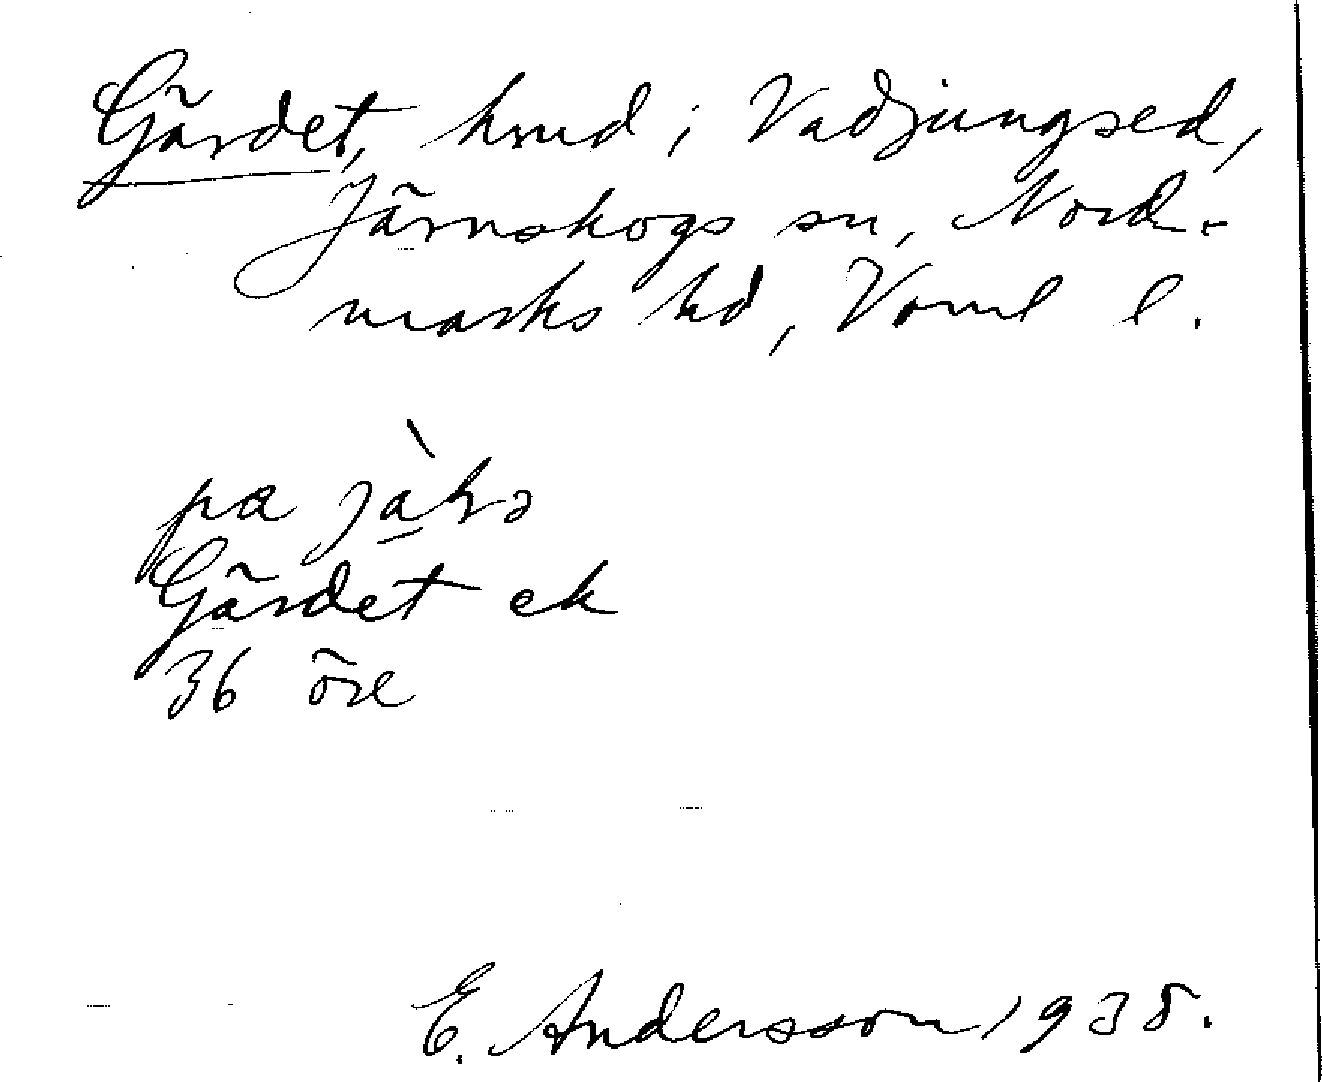 Gärdet, hmd i Vadjungsed,
Järnskogs sn, Nord-
marks hd, Vrml l.
pæ
Gärdet ek
36 öre
E. Andersson 1935.